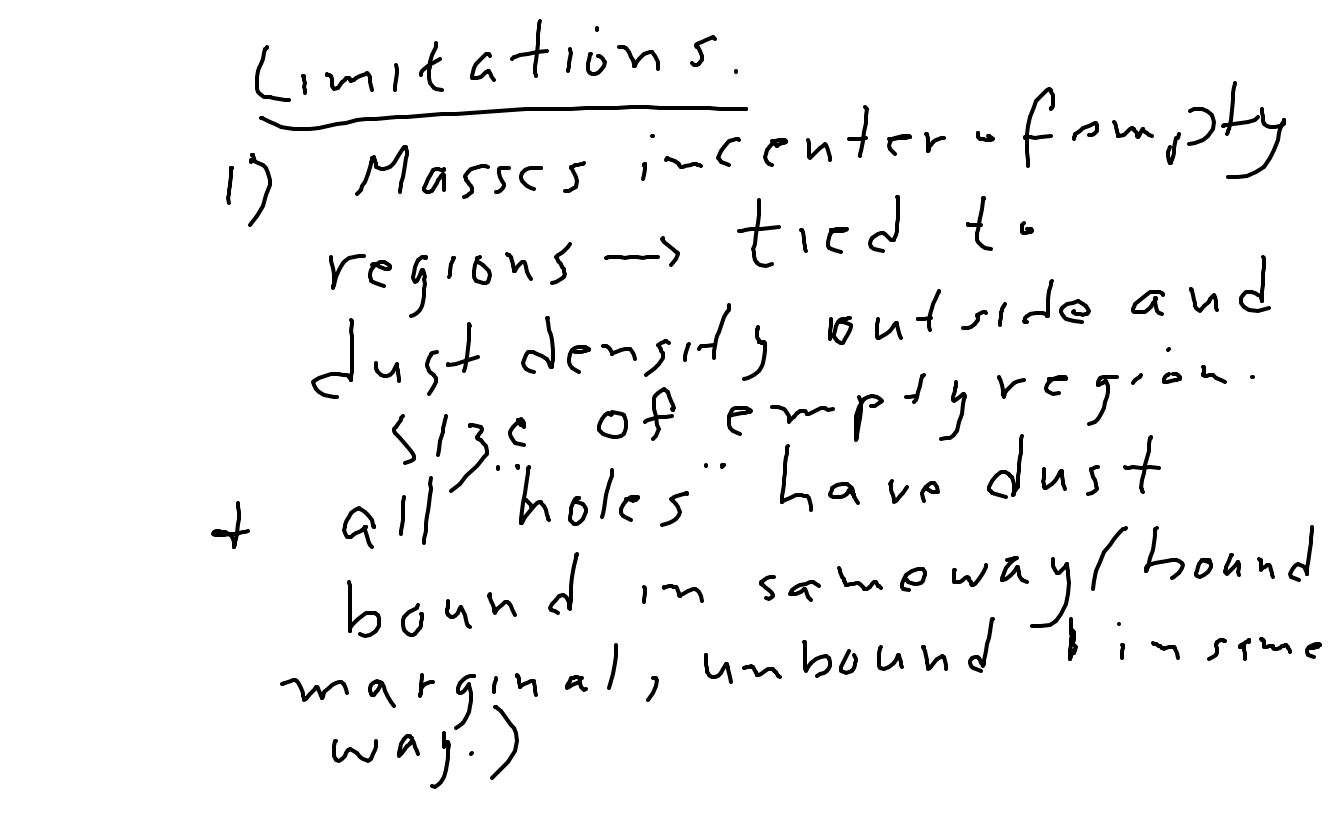 Limitations.
1) Masses in center of empty
regions → tied to
dust density outside and
size of empty region.
+ all "holes" have dust
bound in same way (bound
marginal, unbound in same
way.)